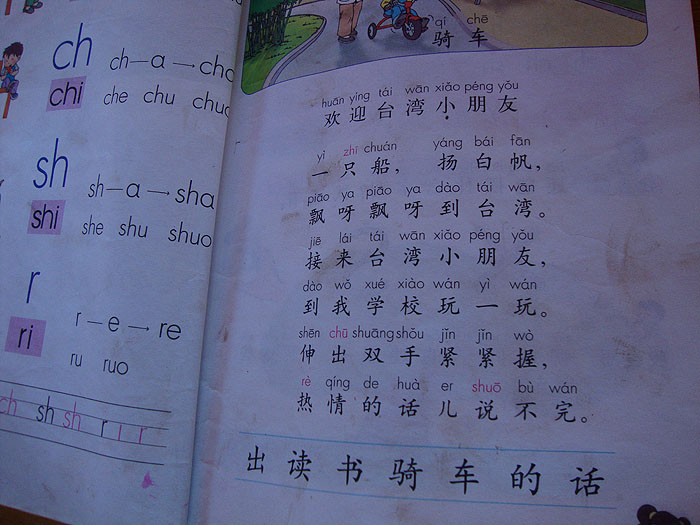 ch ch—ɑ→cha
chi che chu chuo
sh sh—ɑ→sha
shi she shu shuo
r r—e→re
ri ru ruo
ch sh sh r r r
qí chē
骑车
huān yíng tái wān xiǎo péng yǒu
欢迎台湾小朋友
yì zhī chuán yáng bái fān
一只船，扬白帆，
piāo ya piāo ya dào tái wān
飘呀飘呀到台湾。
jiē lái tái wān xiǎo péng yǒu
接来台湾小朋友，
dào wǒ xué xiào wán yì wán
到我学校玩一玩。
shēn chū shuāng shǒu jǐn jǐn wò
伸出双手紧紧握，
rè qíng de huà er shuō bù wán
热情的话儿说不完。
出读书骑车的话